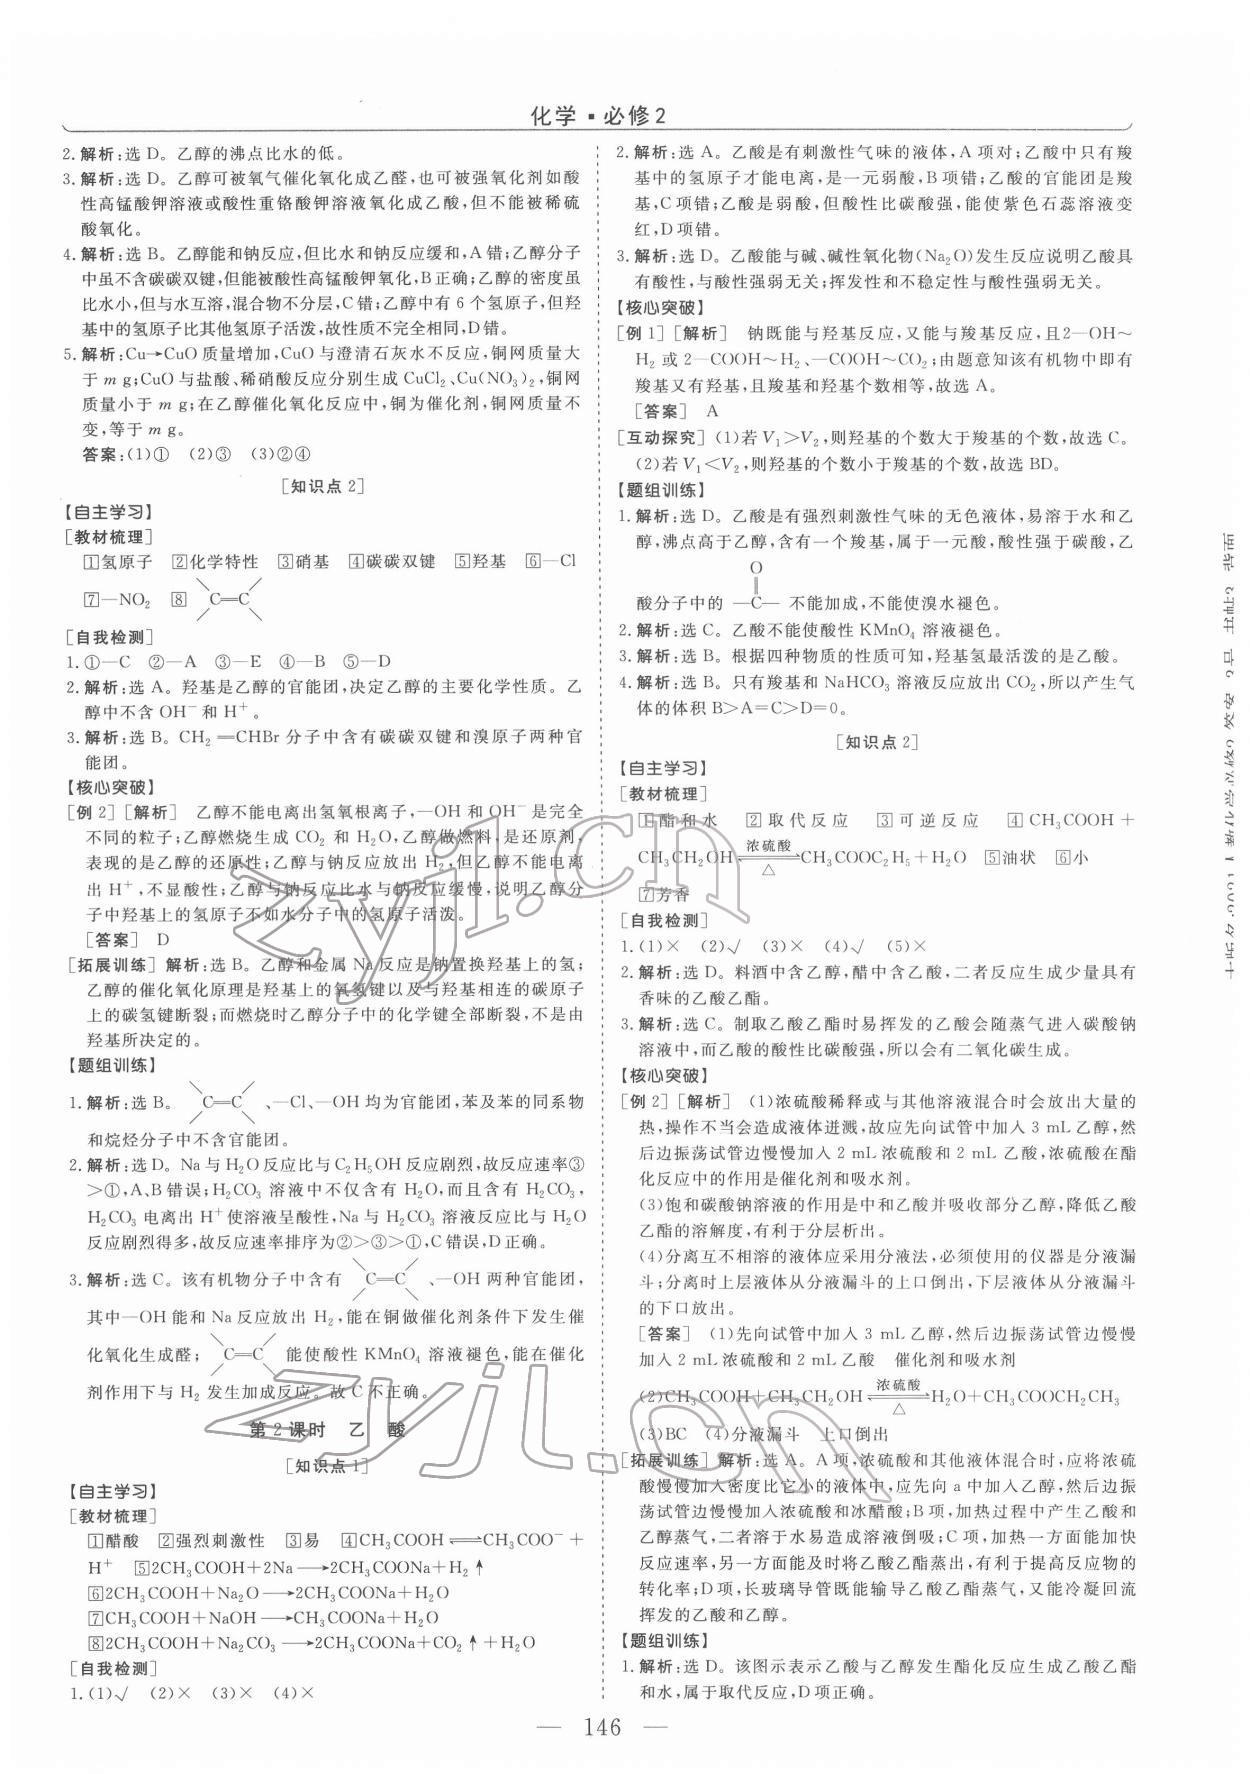 化学·必修2
2. 解析:选 D。乙醇的沸点比水的低。
3. 解析:选 D。乙醇可被氧气催化氧化成乙醛,也可被强氧化剂如酸
性高锰酸钾溶液或酸性重铬酸钾溶液氧化成乙酸,但不能被稀硫
酸氧化。
4. 解析:选 B。乙醇能和钠反应,但比水和钠反应缓和,A 错;乙醇分子
中虽不含碳碳双键,但能被酸性高锰酸钾氧化,B 正确;乙醇的密度虽
比水小,但与水互溶,混合物不分层,C 错;乙醇中有 6 个氢原子,但羟
基中的氢原子比其他氢原子活泼,故性质不完全相同,D 错。
5. 解析:Cu→CuO 质量增加,CuO 与澄清石灰水不反应,铜网质量大
于 m g;CuO 与盐酸、稀硝酸反应分别生成 CuCl₂、Cu(NO₃)₂,铜网
质量小于 m g;在乙醇催化氧化反应中,铜为催化剂,铜网质量不
变,等于 m g。
答案:(1)① (2)③ (3)②④
[知识点 2]
【自主学习】
[教材梳理]
1氢原子 2化学特性 3硝基 4碳碳双键 5羟基 6—Cl
7—NO₂ 8 C═C
[自我检测]
1. ①—C ②—A ③—E ④—B ⑤—D
2. 解析:选 A。羟基是乙醇的官能团,决定乙醇的主要化学性质。乙
醇中不含 OH⁻ 和 H⁺。
3. 解析:选 B。CH₂═CHBr 分子中含有碳碳双键和溴原子两种官
能团。
【核心突破】
[例 2] [解析] 乙醇不能电离出氢氧根离子,—OH 和 OH⁻ 是完全
不同的粒子;乙醇燃烧生成 CO₂ 和 H₂O,乙醇做燃料,是还原剂,
表现的是乙醇的还原性;乙醇与钠反应放出 H₂,但乙醇不能电离
出 H⁺,不显酸性;乙醇与钠反应比水与钠反应缓慢,说明乙醇分
子中羟基上的氢原子不如水分子中的氢原子活泼。
[答案] D
[拓展训练] 解析:选 B。乙醇和金属 Na 反应是钠置换羟基上的氢;
乙醇的催化氧化原理是羟基上的氧氢键以及与羟基相连的碳原子
上的碳氢键断裂;而燃烧时乙醇分子中的化学键全部断裂,不是由
羟基所决定的。
【题组训练】
1. 解析:选 B。 C═C 、—Cl、—OH 均为官能团,苯及苯的同系物
和烷烃分子中不含官能团。
2. 解析:选 D。Na 与 H₂O 反应比与 C₂H₅OH 反应剧烈,故反应速率③
>①,A、B 错误;H₂CO₃ 溶液中不仅含有 H₂O,而且含有 H₂CO₃,
H₂CO₃ 电离出 H⁺使溶液呈酸性,Na 与 H₂CO₃ 溶液反应比与 H₂O
反应剧烈得多,故反应速率排序为②>③>①,C 错误,D 正确。
3. 解析:选 C。该有机物分子中含有 C═C 、—OH 两种官能团,
其中—OH 能和 Na 反应放出 H₂,能在铜做催化剂条件下发生催
化氧化生成醛; C═C 能使酸性 KMnO₄ 溶液褪色,能在催化
剂作用下与 H₂ 发生加成反应。故 C 不正确。
第 2 课时 乙 酸
[知识点 1]
【自主学习】
[教材梳理]
1醋酸 2强烈刺激性 3易 4CH₃COOH⇌CH₃COO⁻+
H⁺ 52CH₃COOH+2Na→2CH₃COONa+H₂↑
62CH₃COOH+Na₂O→2CH₃COONa+H₂O
7CH₃COOH+NaOH→CH₃COONa+H₂O
82CH₃COOH+Na₂CO₃→2CH₃COONa+CO₂↑+H₂O
[自我检测]
1. (1)√ (2)× (3)× (4)×
2. 解析:选 A。乙酸是有刺激性气味的液体,A 项对;乙酸中只有羧
基中的氢原子才能电离,是一元弱酸,B 项错;乙酸的官能团是羧
基,C 项错;乙酸是弱酸,但酸性比碳酸强,能使紫色石蕊溶液变
红,D 项错。
3. 解析:选 D。乙酸能与碱、碱性氧化物(Na₂O)发生反应说明乙酸具
有酸性,与酸性强弱无关;挥发性和不稳定性与酸性强弱无关。
【核心突破】
[例 1] [解析] 钠既能与羟基反应,又能与羧基反应,且 2—OH～
H₂ 或 2—COOH～H₂、—COOH～CO₂;由题意知该有机物中即有
羧基又有羟基,且羧基和羟基个数相等,故选 A。
[答案] A
[互动探究] (1)若 V₁>V₂,则羟基的个数大于羧基的个数,故选 C。
(2)若 V₁<V₂,则羟基的个数小于羧基的个数,故选 BD。
【题组训练】
1. 解析:选 D。乙酸是有强烈刺激性气味的无色液体,易溶于水和乙
醇,沸点高于乙醇,含有一个羧基,属于一元酸,酸性强于碳酸,乙
O
‖
酸分子中的 —C— 不能加成,不能使溴水褪色。
2. 解析:选 C。乙酸不能使酸性 KMnO₄ 溶液褪色。
3. 解析:选 B。根据四种物质的性质可知,羟基氢最活泼的是乙酸。
4. 解析:选 B。只有羧基和 NaHCO₃ 溶液反应放出 CO₂,所以产生气
体的体积 B>A=C>D=0。
[知识点 2]
【自主学习】
[教材梳理]
1酯和水 2取代反应 3可逆反应 4CH₃COOH+
CH₃CH₂OH 浓硫酸⇌△ CH₃COOC₂H₅+H₂O 5油状 6小
7芳香
[自我检测]
1. (1)× (2)√ (3)× (4)√ (5)×
2. 解析:选 D。料酒中含乙醇,醋中含乙酸,二者反应生成少量具有
香味的乙酸乙酯。
3. 解析:选 C。制取乙酸乙酯时易挥发的乙酸会随蒸气进入碳酸钠
溶液中,而乙酸的酸性比碳酸强,所以会有二氧化碳生成。
【核心突破】
[例 2] [解析] (1)浓硫酸稀释或与其他溶液混合时会放出大量的
热,操作不当会造成液体迸溅,故应先向试管中加入 3 mL 乙醇,然
后边振荡试管边慢慢加入 2 mL 浓硫酸和 2 mL 乙酸,浓硫酸在酯
化反应中的作用是催化剂和吸水剂。
(3)饱和碳酸钠溶液的作用是中和乙酸并吸收部分乙醇,降低乙酸
乙酯的溶解度,有利于分层析出。
(4)分离互不相溶的液体应采用分液法,必须使用的仪器是分液漏
斗;分离时上层液体从分液漏斗的上口倒出,下层液体从分液漏斗
的下口放出。
[答案] (1)先向试管中加入 3 mL 乙醇,然后边振荡试管边慢慢
加入 2 mL 浓硫酸和 2 mL 乙酸 催化剂和吸水剂
(2)CH₃COOH+CH₃CH₂OH 浓硫酸⇌△ H₂O+CH₃COOCH₂CH₃
(3)BC (4)分液漏斗 上口倒出
[拓展训练] 解析:选 A。A 项,浓硫酸和其他液体混合时,应将浓硫
酸慢慢加入密度比它小的液体中,应先向 a 中加入乙醇,然后边振
荡试管边慢慢加入浓硫酸和冰醋酸;B 项,加热过程中产生乙酸和
乙醇蒸气,二者溶于水易造成溶液倒吸;C 项,加热一方面能加快
反应速率,另一方面能及时将乙酸乙酯蒸出,有利于提高反应物的
转化率;D 项,长玻璃导管既能输导乙酸乙酯蒸气,又能冷凝回流
挥发的乙酸和乙醇。
【题组训练】
1. 解析:选 D。该图示表示乙酸与乙醇发生酯化反应生成乙酸乙酯
和水,属于取代反应,D 项正确。
— 146 —
zyjl.cn
zyjl.cn